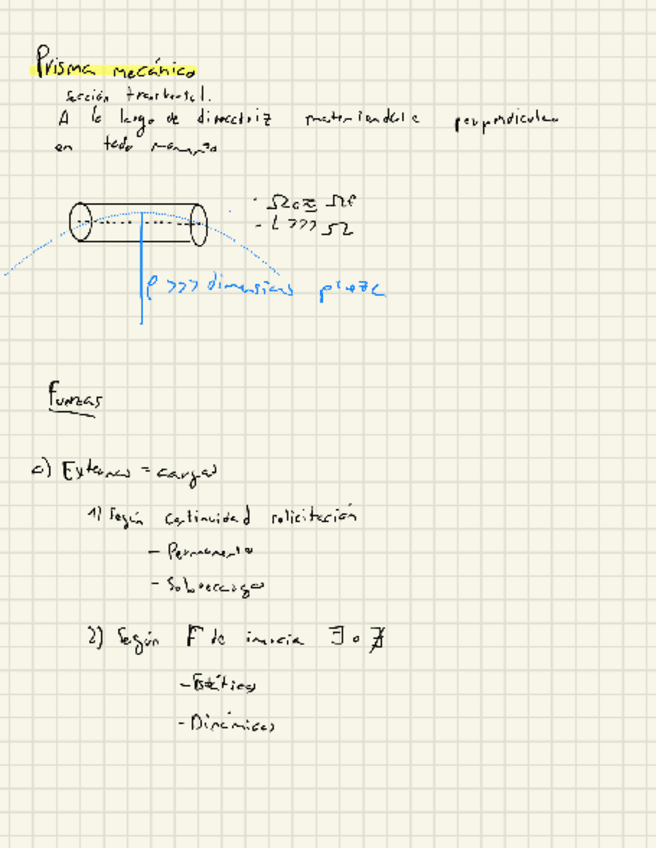 Prisma mecánico
sección transversal.
A lo largo de directriz manteniendola perpendicular
en todo momento
- Ωa ≈ Ωf
- L >>> Ω
ρ >>> dimensions pieza
Fuerzas
a) Externas = cargas
1) Según continuidad solicitación
- Permanente
- Sobrecargas
2) Según F de inercia ∃ o ∄
- Estáticas
- Dinámicas